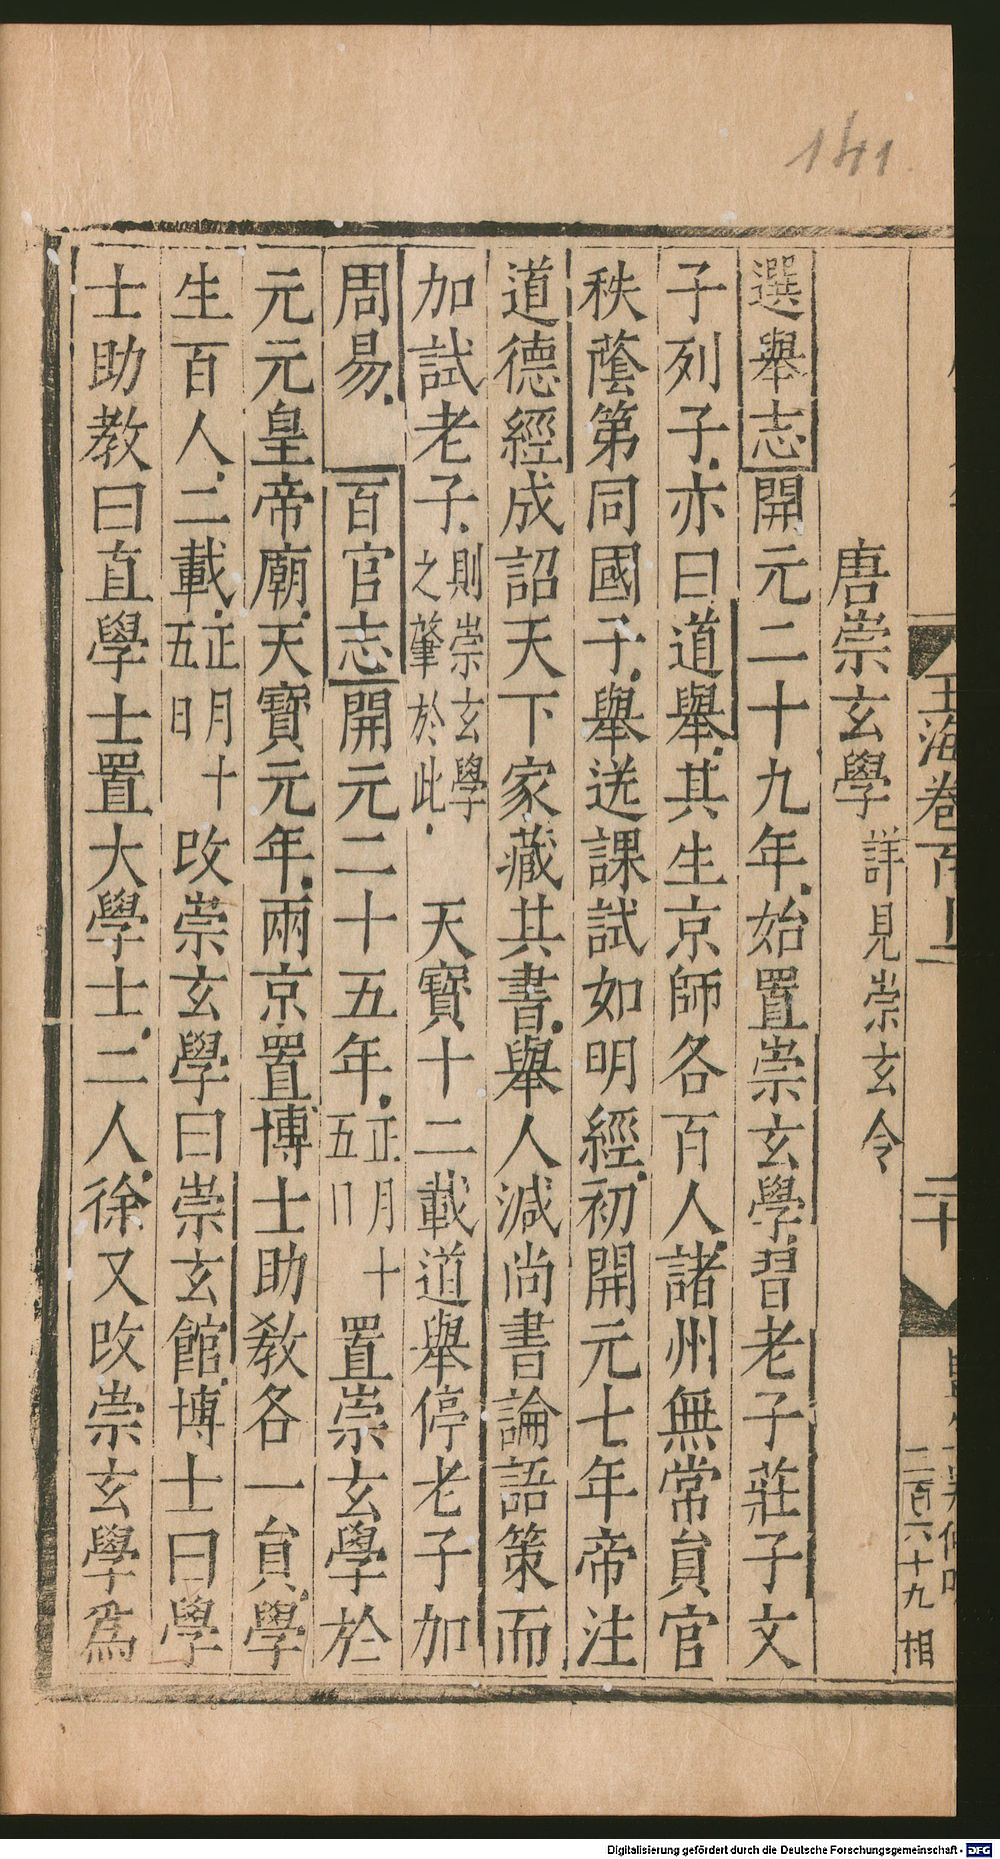 141
玉海卷百
二十
二百六十九 相
唐崇玄學 詳見崇玄令
選舉志開元二十九年始置崇玄學習老子莊子文
子列子亦曰道舉其生京師各百人諸州無常員官
秩蔭第同國子舉送課試如明經初開元七年帝注
道德經成詔天下家藏其書舉人減尚書論語策而
加試老子則崇玄學之肇於此天寶十二載道舉停老子加
周易 百官志開元二十五年正月十五日置崇玄學於
元元皇帝廟天寶元年兩京置博士助教各一員學
生百人二載正月十五日改崇玄學曰崇玄館博士曰學
士助教曰直學士置大學士二人徐又改崇玄學為
Digitalisierung gefördert durch die Deutsche Forschungsgemeinschaft - DFG